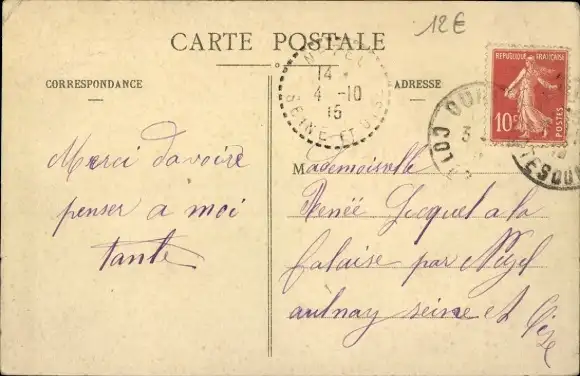 12€
CARTE POSTALE
CORRESPONDANCE
ADRESSE
14
4 -10
15
SEINE ET OISE
REPUBLIQUE FRANÇAISE
10c
POSTES
3
Merci davoire
penser a moi
tante
Mademoiselle
Renée Jacquel a la
falaise par
aulnay seine et Oise